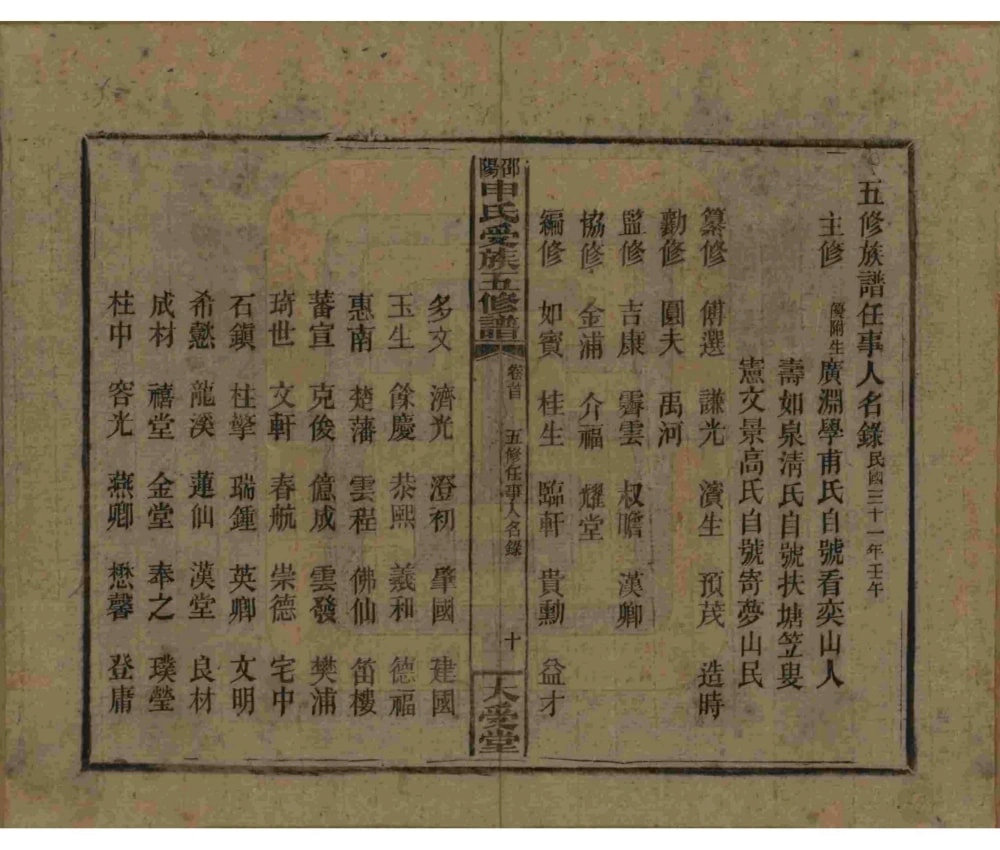 五修族譜任事人名錄民國三十一年壬午
主修 優附生廣淵學甫氏自號看奕山人
壽如泉淸氏自號扶塘笠叟
憲文景高氏自號寄夢山民
纂修 傅選 謙光 濱生 預茂 造時
勸修 圓夫 禹河
監修 吉康 霽雲 叔瞻 漢卿
協修 金浦 介福 耀堂
編修 如賓 桂生 臨軒 貴勳 益才
邵陽申氏受族五修譜 卷首 五修任事人名錄 十 大受堂
多文 濟光 澄初 肇國 建國
玉生 餘慶 恭熙 義和 德福
惠南 楚藩 雲程 佛仙 笛樓
蕃宣 克俊 億成 雲發 樊浦
琦世 文軒 春航 崇德 宅中
石鎭 柱擎 瑞鍾 英卿 文明
希憗 龍溪 蓮仙 漢堂 良材
成材 禧堂 金堂 奉之 璞瑩
柱中 容光 燕卿 懋馨 登庸